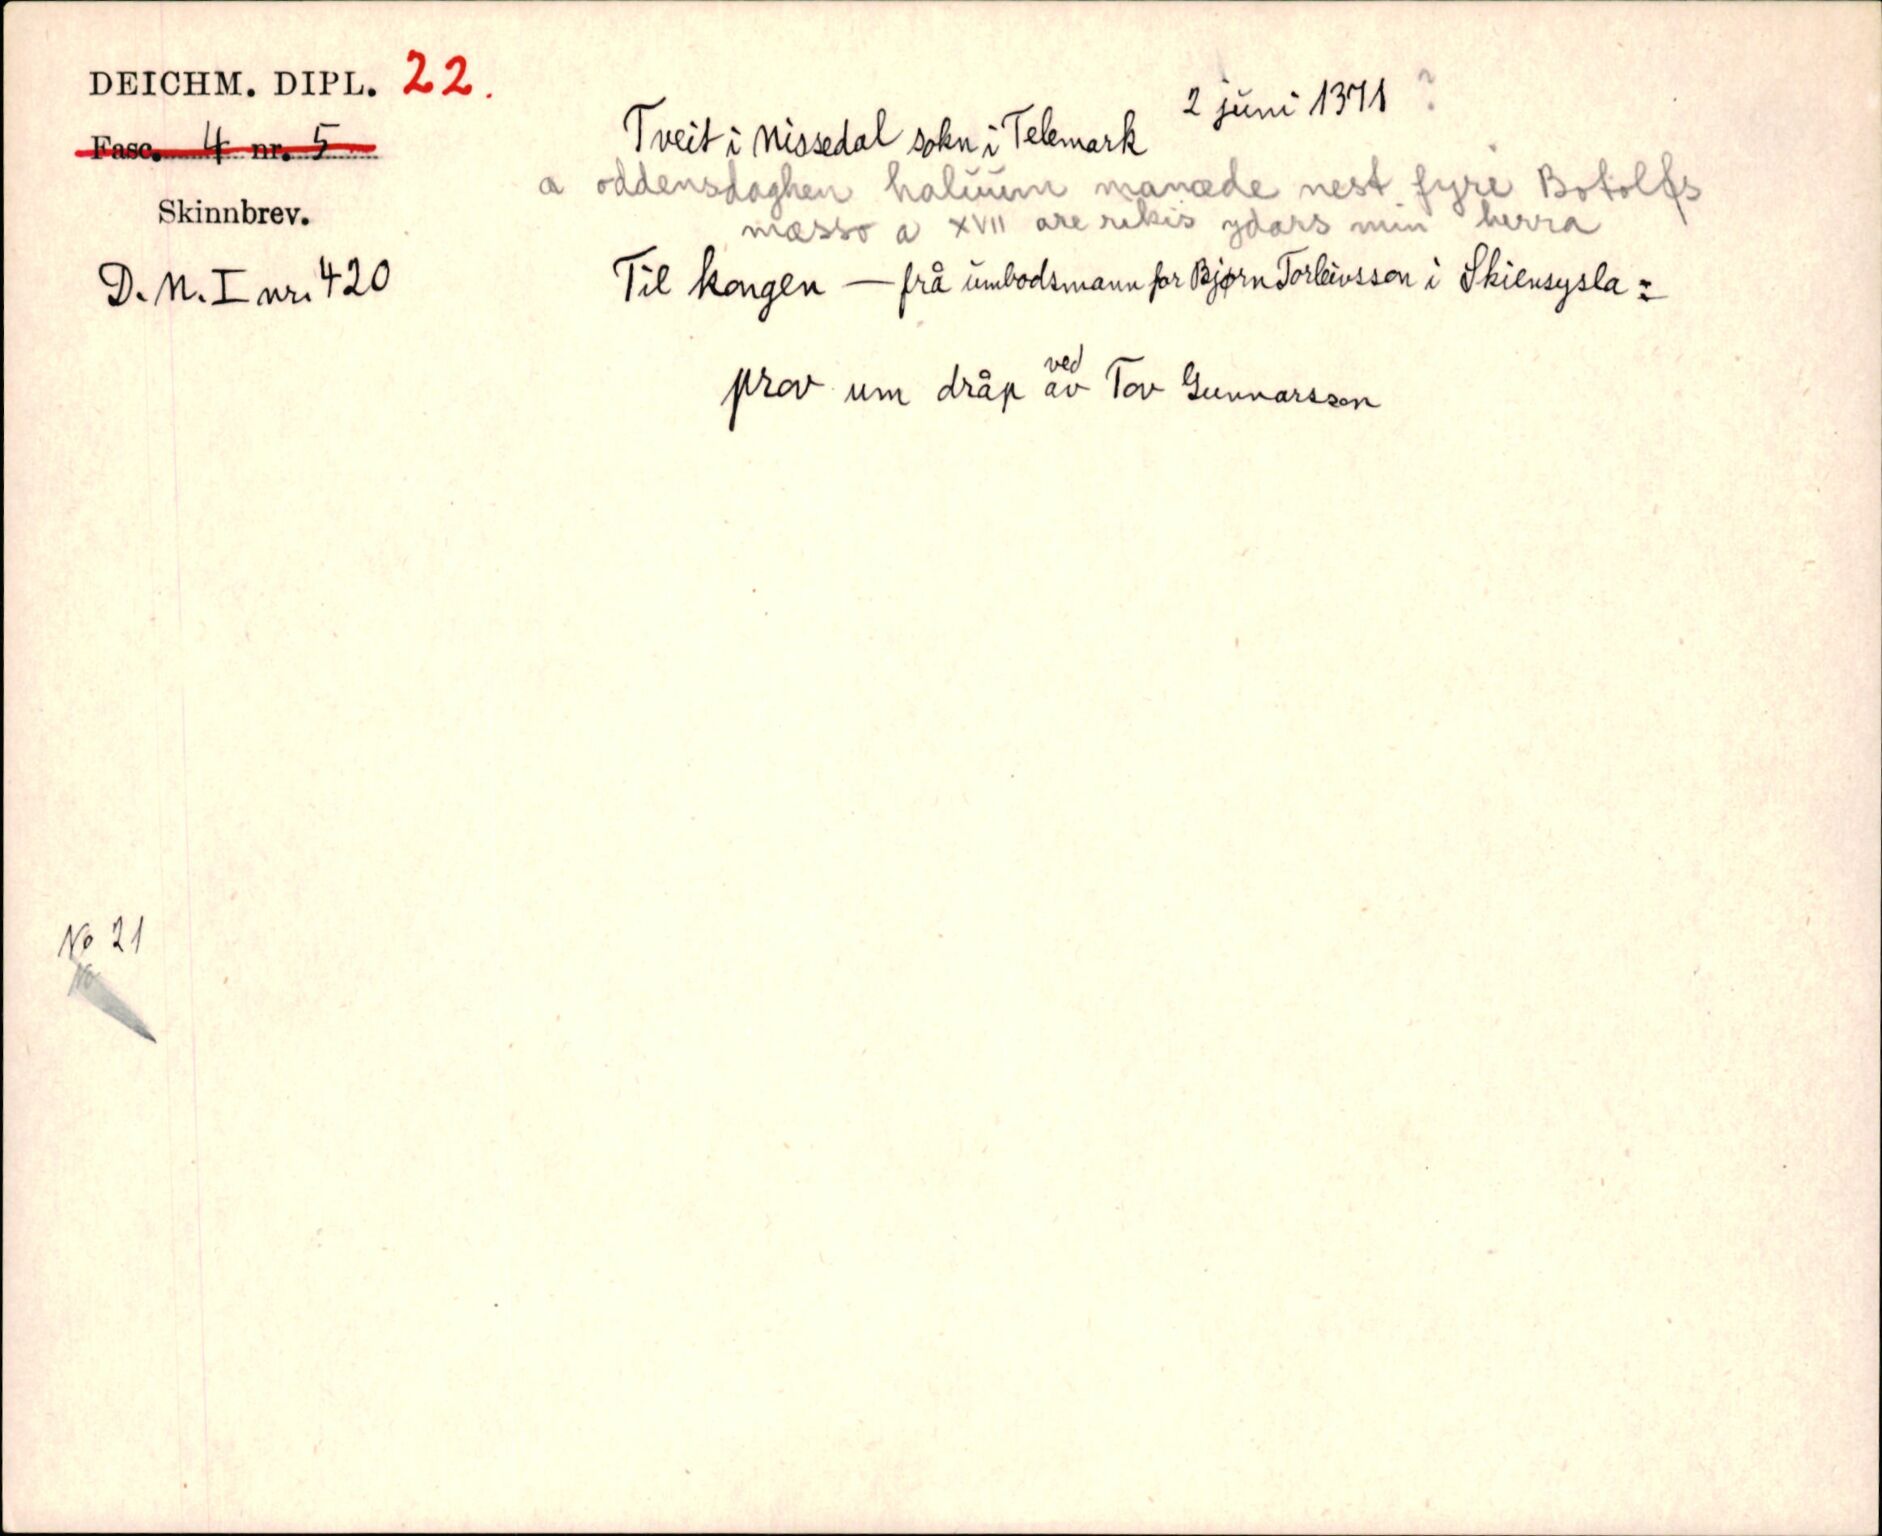 DEICHM. DIPL. 22.
Fasc. 4 nr. 5
Skinnbrev.
D. N. I nr. 420
2 juni 1371 ?
Tveit i Nissedal sokn i Telemark
a oddensdaghen haluum manæde nest fyre Botolfs
mæsso a XVII are rikis ydars min herra
Til kongen — frå umbodsmann for Bjørn Torleivsson i Skiensysla :
prov um dråp av ved Tov Gunnarsson
No 21
No